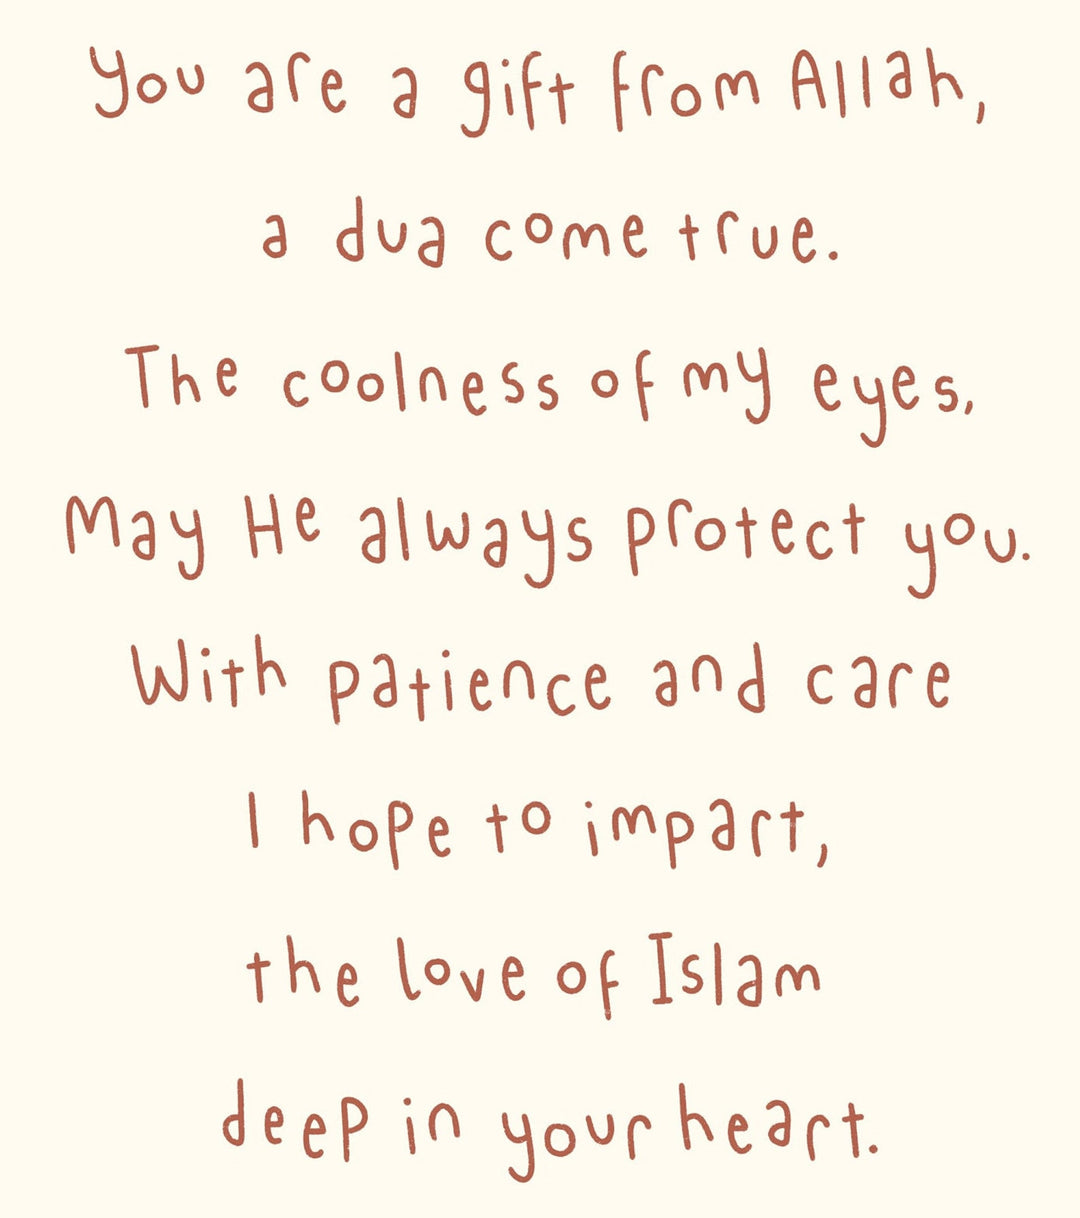 You are a gift from Allah,
a dua come true.
The coolness of my eyes,
May He always protect you.
With patience and care
I hope to impart,
the love of Islam
deep in your heart.